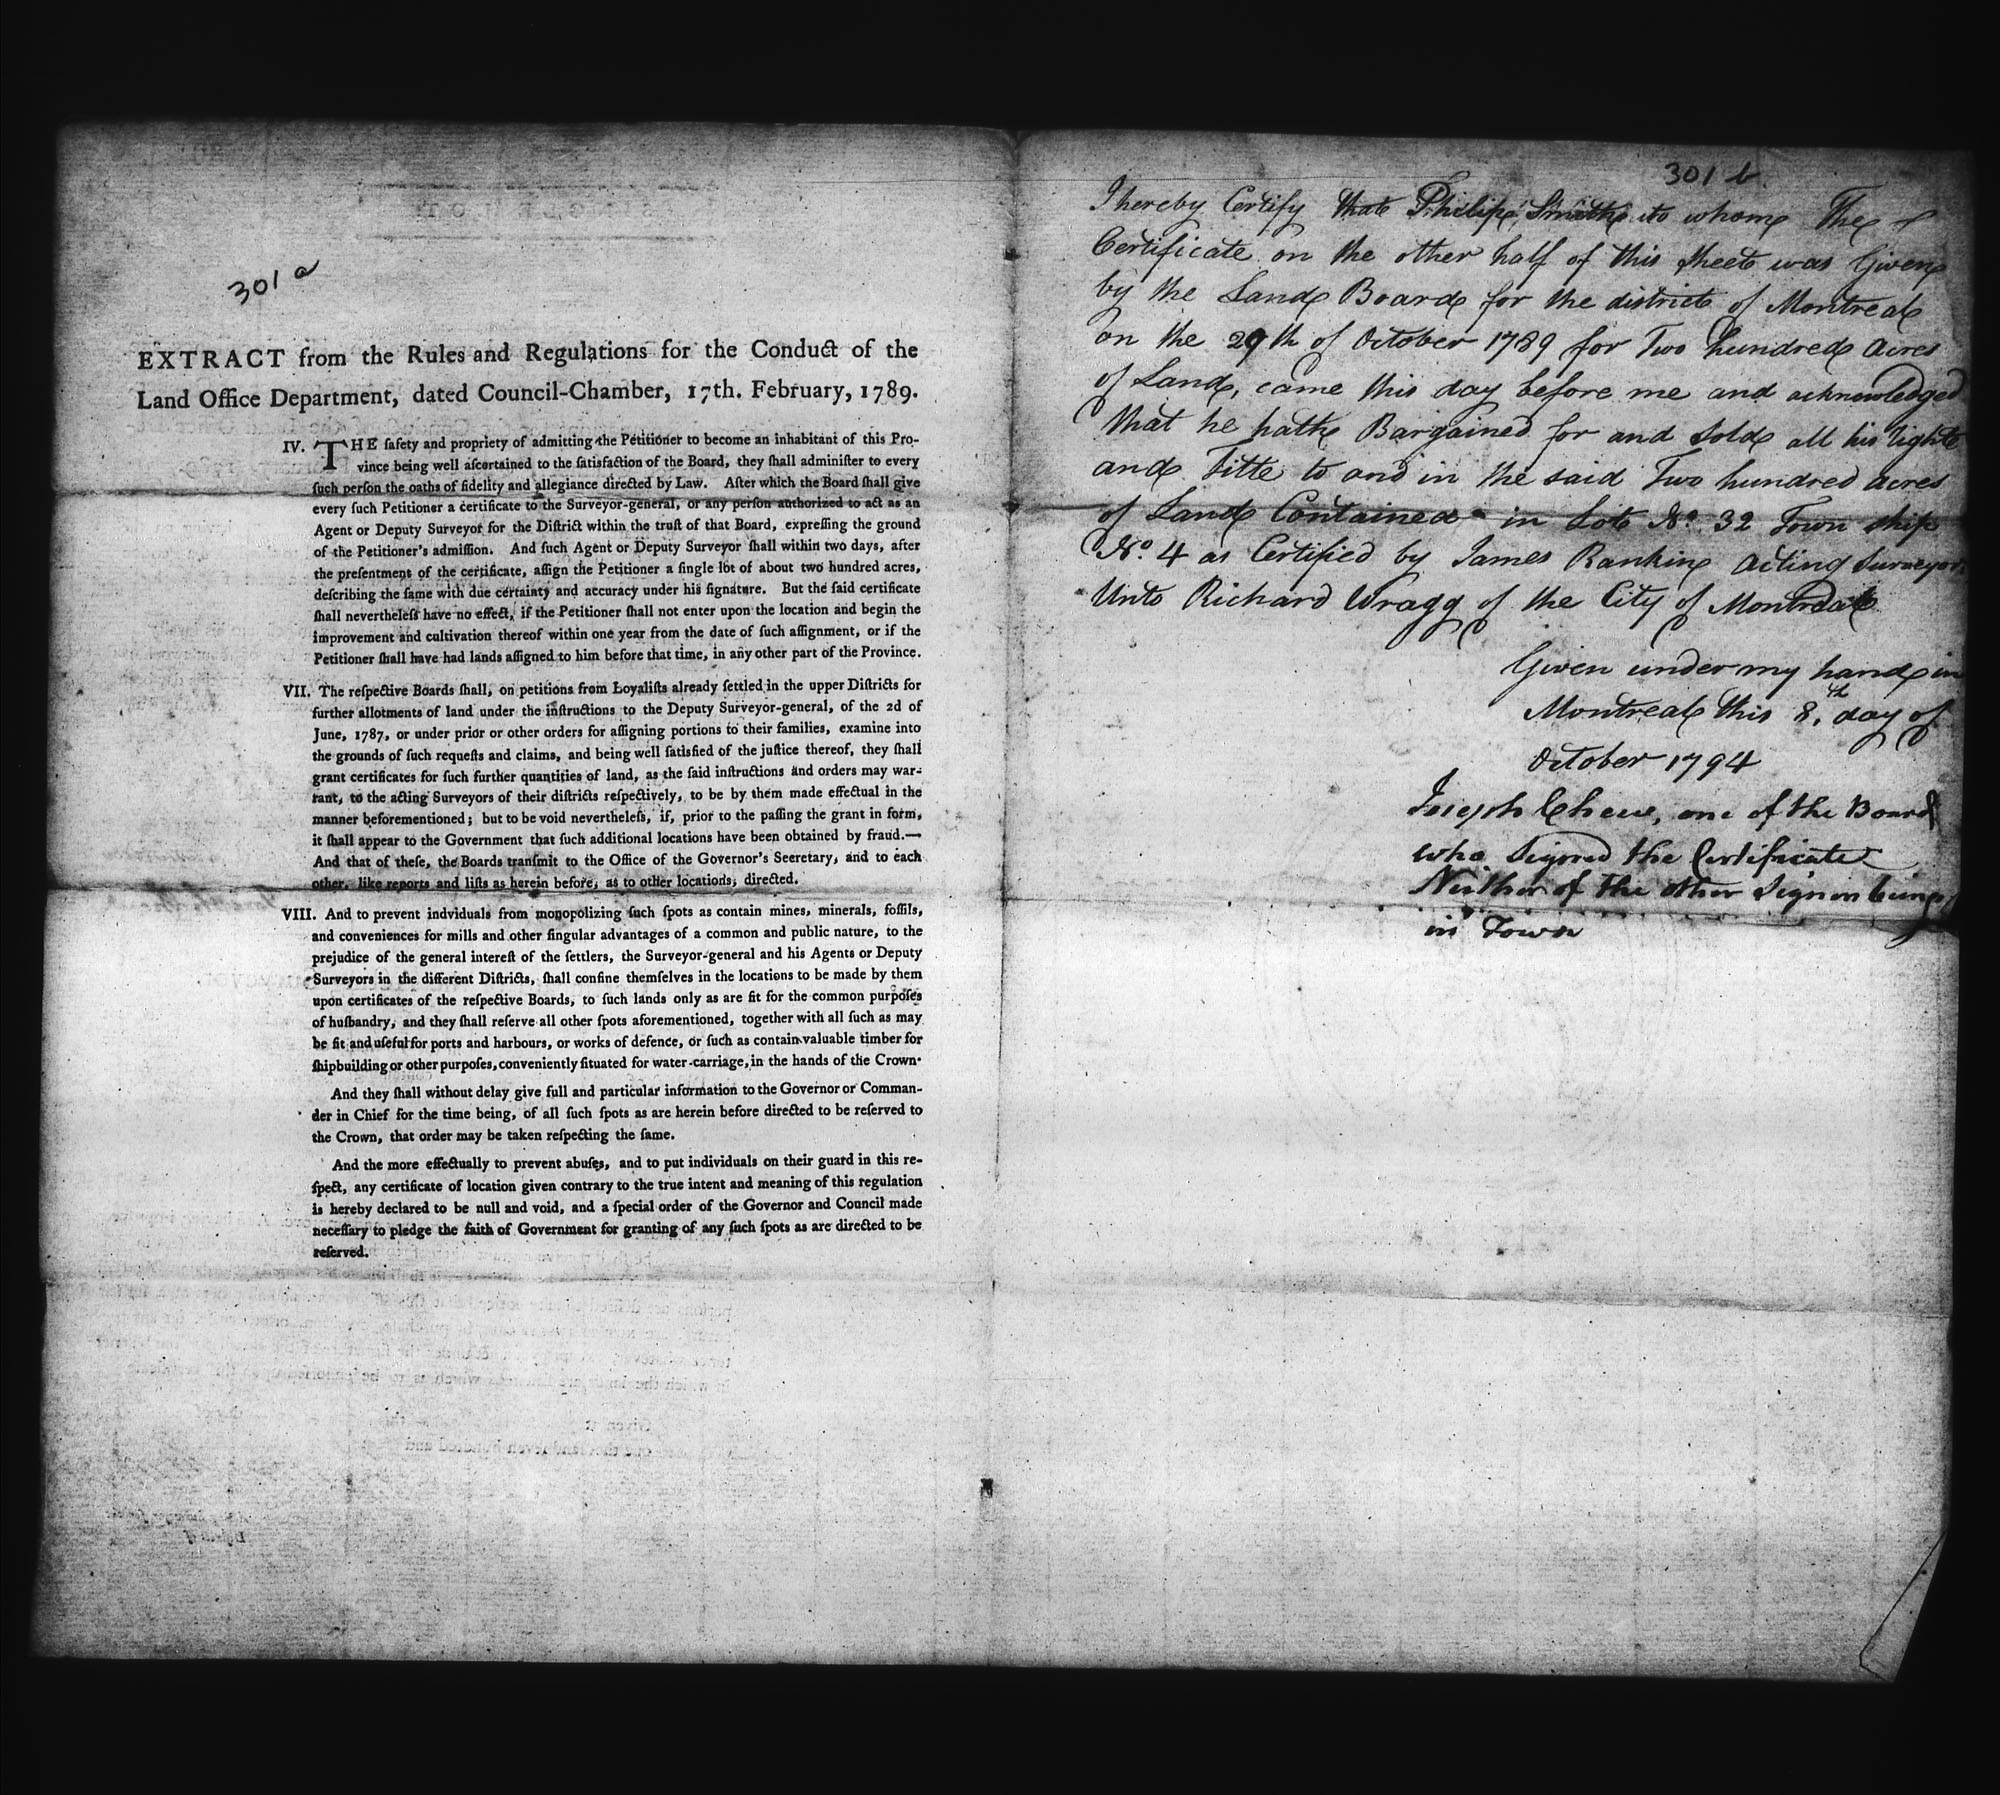 301 a
EXTRACT from the Rules and Regulations for the Conduct of the
Land Office Department, dated Council-Chamber, 17th. February, 1789.
IV. THE ſafety and propriety of admitting the Petitioner to become an inhabitant of this Pro-
vince being well aſcertained to the ſatisfaction of the Board, they ſhall adminiſter to every
ſuch perſon the oaths of fidelity and allegiance directed by Law. After which the Board ſhall give
every ſuch Petitioner a certificate to the Surveyor-general, or any perſon authorized to act as an
Agent or Deputy Surveyor for the Diſtrict within the truſt of that Board, expreſſing the ground
of the Petitioner's admiſſion. And ſuch Agent or Deputy Surveyor ſhall within two days, after
the preſentment of the certificate, aſſign the Petitioner a ſingle lot of about two hundred acres,
deſcribing the ſame with due certainty and accuracy under his ſignature. But the ſaid certificate
ſhall nevertheleſs have no effect, if the Petitioner ſhall not enter upon the location and begin the
improvement and cultivation thereof within one year from the date of ſuch aſſignment, or if the
Petitioner ſhall have had lands aſſigned to him before that time, in any other part of the Province.
VII. The reſpective Boards ſhall, on petitions from Loyaliſts already ſettled in the upper Diſtricts for
further allotments of land under the inſtructions to the Deputy Surveyor-general, of the 2d of
June, 1787, or under prior or other orders for aſſigning portions to their families, examine into
the grounds of ſuch requeſts and claims, and being well ſatisfied of the juſtice thereof, they ſhall
grant certificates for ſuch further quantities of land, as the ſaid inſtructions and orders may war-
rant, to the acting Surveyors of their diſtricts reſpectively, to be by them made effectual in the
manner beforementioned; but to be void nevertheleſs, if, prior to the paſſing the grant in form,
it ſhall appear to the Government that ſuch additional locations have been obtained by fraud.—
And that of theſe, the Boards tranſmit to the Office of the Governor's Secretary, and to each
other, like reports and liſts as herein before, as to other locations, directed.
VIII. And to prevent indviduals from monopolizing ſuch ſpots as contain mines, minerals, foſſils,
and conveniences for mills and other ſingular advantages of a common and public nature, to the
prejudice of the general intereſt of the ſettlers, the Surveyor-general and his Agents or Deputy
Surveyors in the different Diſtricts, ſhall confine themſelves in the locations to be made by them
upon certificates of the reſpective Boards, to ſuch lands only as are fit for the common purpoſes
of huſbandry, and they ſhall reſerve all other ſpots aforementioned, together with all ſuch as may
be fit and uſeful for ports and harbours, or works of defence, or ſuch as contain valuable timber for
ſhipbuilding or other purpoſes, conveniently ſituated for water-carriage, in the hands of the Crown.
And they ſhall without delay give full and particular information to the Governor or Comman-
der in Chief for the time being, of all ſuch ſpots as are herein before directed to be reſerved to
the Crown, that order may be taken reſpecting the ſame.
And the more effectually to prevent abuſes, and to put individuals on their guard in this re-
ſpect, any certificate of location given contrary to the true intent and meaning of this regulation
is hereby declared to be null and void, and a ſpecial order of the Governor and Council made
neceſſary to pledge the faith of Government for granting of any ſuch ſpots as are directed to be
reſerved.
301 b
I hereby Certify that Philip Smith to whom The
Certificate on the other half of this sheet was Given
by the Land Board for the district of Montreal
on the 29th of October 1789 for Two hundred Acres
of Land, came this day before me and acknowledged
that he hath Bargained for and Sold all his right
and Title to and in the said Two hundred acres
of Land Contained in Lot No. 32 Town ship
No. 4 as Certified by James Rankin Acting Surveyor
Unto Richard Wragg of the City of Montreal
Given under my hand in
Montreal this 8th day of
October 1794
Joseph Chew, one of the Board
who Signed the Certificate
Neither of the other Signers being
in Town